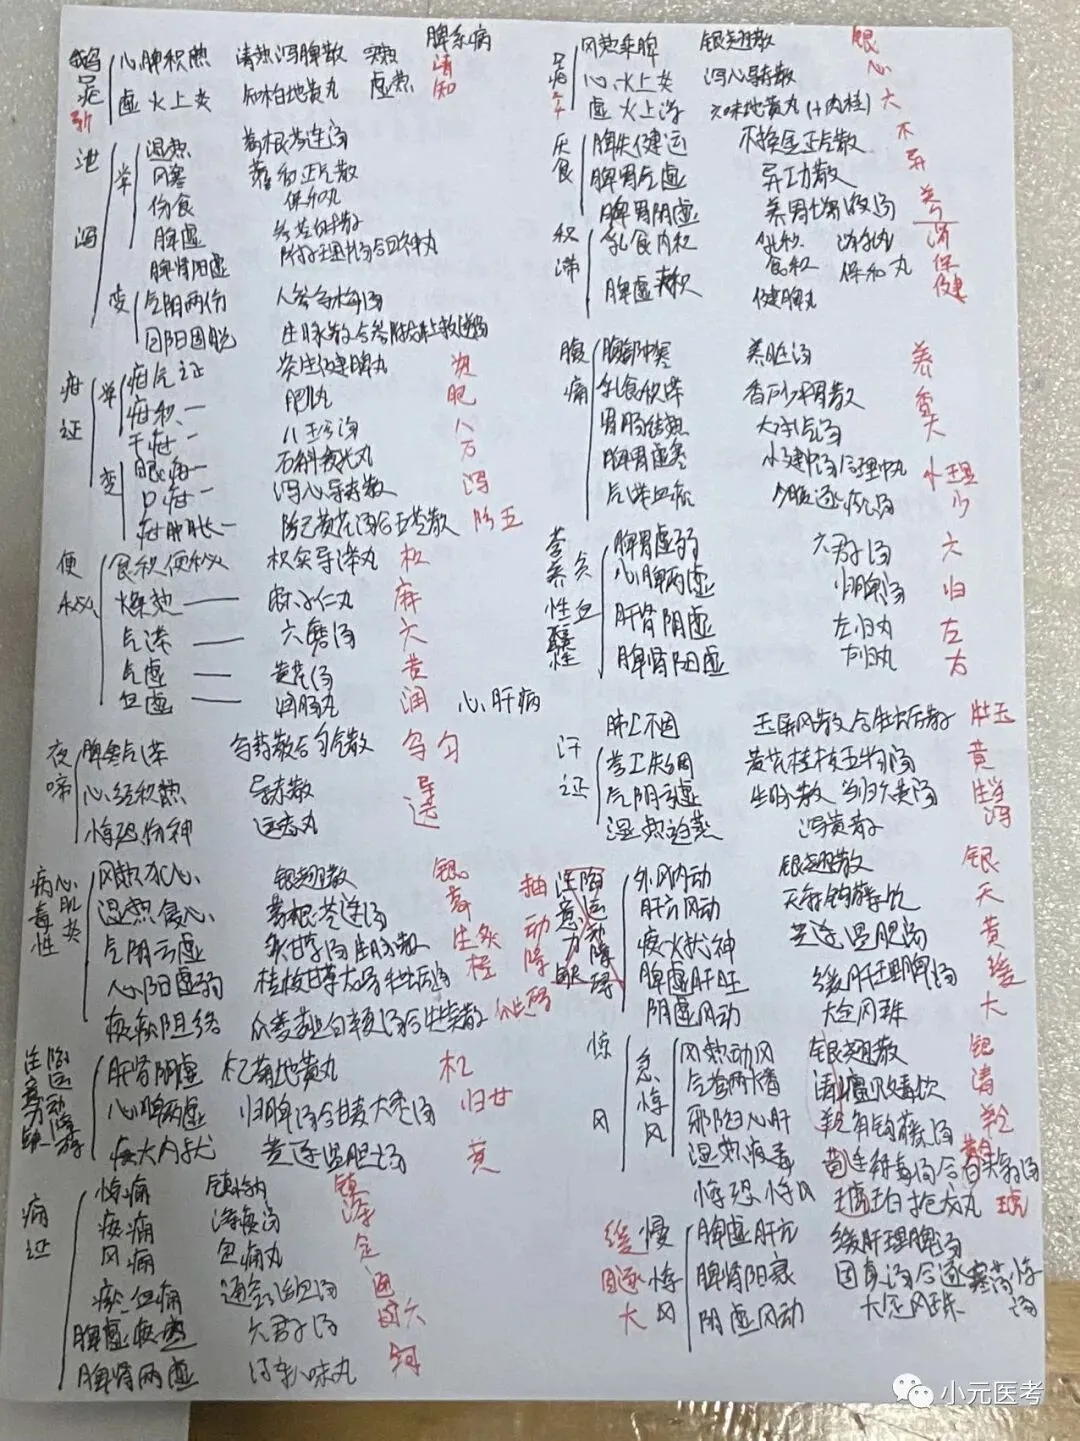 脾系病
鹅口疮
心脾积热 清热泻脾散 实热 清
虚火上炎 知柏地黄丸 虚热 知
泄泻
常
湿热 葛根芩连汤
风寒 藿香正气散
伤食 保和丸
脾虚 参苓白术散
脾肾阳虚 附子理中汤合四神丸
变
气阴两伤 人参乌梅汤
生脉散合参附龙牡救逆汤
疳证
常
疳气证 资生健脾丸 资
疳积一 肥儿丸 肥
干疳一 八珍汤 八
变
眼疳一 石斛夜光丸
口疳一 泻心导赤散 泻
疳肿胀一 防己黄芪汤合五苓散 防五
便秘
食积便秘 枳实导滞丸 枳
燥热 —— 麻子仁丸 麻
气滞 —— 六磨汤 六
气虚 —— 黄芪汤 黄
血虚 —— 润肠丸 润
心肝病
夜啼
脾寒气滞 乌药散合匀气散 乌匀
心经积热 导赤散 导
惊恐伤神 远志丸 远
病毒性心肌炎
风热犯心 银翘散 银
湿热侵心 葛根芩连汤 葛
气阴亏虚 炙甘草汤生脉散 生炙
心阳虚弱 桂枝甘草龙骨牡蛎汤 桂
痰瘀阻络 瓜蒌薤白半夏汤合失笑散
肝肾阴虚 杞菊地黄丸 杞
心脾两虚 归脾汤合甘麦大枣汤 归甘
痰火内扰 黄连温胆汤 黄
痫证
惊痫 镇惊丸 镇
痰痫 涤痰汤 涤
风痫 定痫丸 定
瘀血痫 通窍活血汤 通
脾虚痰盛 六君子汤 六
脾肾两虚 河车八味丸 河
口疮
风热乘脾 银翘散 银
心火上炎 泻心导赤散 心
虚火上浮 六味地黄丸(+肉桂) 六
厌食
脾失健运 不换金正气散 不
脾胃气虚 异功散 异
脾胃阴虚 养胃增液汤 养
积滞
乳食内积 乳积 消乳丸 消
食积 保和丸 保
脾虚夹积 健脾丸 健
腹痛
腹部中寒 养脏汤 养
乳食积滞 香砂平胃散 香
胃肠结热 大承气汤 大
脾胃虚寒 小建中汤合理中丸 小理
气滞血瘀 少腹逐瘀汤 少
营养性缺铁性贫血
脾胃虚弱 六君子汤 六
心脾两虚 归脾汤 归
肝肾阴虚 左归丸 左
脾肾阳虚 右归丸 右
汗证
肺卫不固 玉屏风散合牡蛎散 牡玉
营卫失调 黄芪桂枝五物汤 黄
气阴亏虚 生脉散 当归六黄汤 生当
湿热迫蒸 泻黄散 泻
抽动障碍
外风内动 银翘散 银
肝亢风动 天麻钩藤饮 天
痰火扰神 黄连温胆汤 黄
脾虚肝旺 缓肝理脾汤 缓
阴虚风动 大定风珠 大
惊风
急惊风
风热动风 银翘散 银
气营两燔 清瘟败毒饮 清
邪陷心肝 羚角钩藤汤 羚
湿热疫毒 黄连解毒汤合白头翁汤
惊恐惊风 琥珀抱龙丸 琥
慢惊风
脾虚肝亢 缓肝理脾汤 缓
脾肾阳衰 固真汤合逐寒荡惊汤 固逐
阴虚风动 大定风珠 大
小元医考